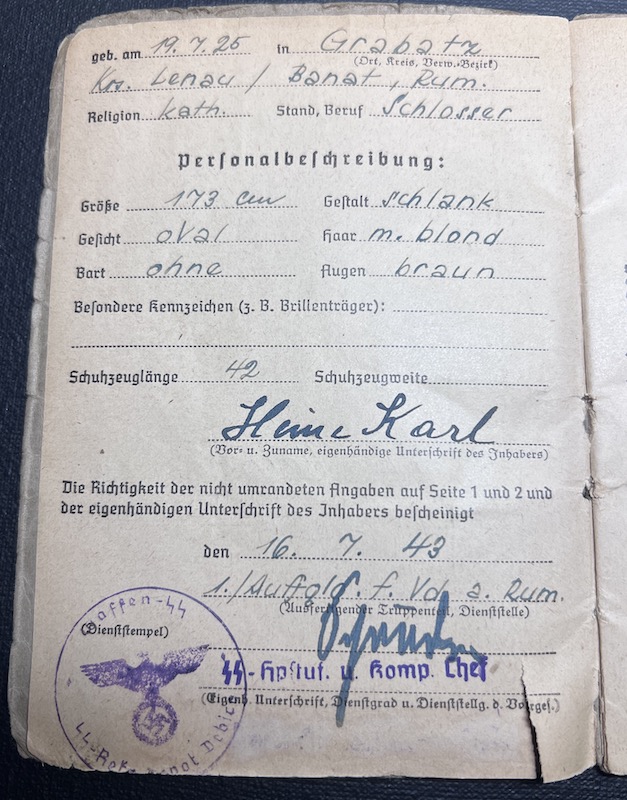 geb. am 19.7.25 in Grabatz
(Ort, Kreis, Verw.-Bezirk)
Krs. Lenau / Banat, Rum.
Religion kath. Stand, Beruf Schlosser
Perſonalbeſchreibung:
Größe 173 cm Geſtalt schlank
Geſicht oval Haar m. blond
Bart ohne Augen braun
Beſondere Kennzeichen (z. B. Brillenträger):
Schuhzeuglänge 42 Schuhzeugweite
Heine Karl
(Vor- u. Zuname, eigenhändige Unterſchrift des Inhabers)
Die Richtigkeit der nicht umrandeten Angaben auf Seite 1 und 2 und
der eigenhändigen Unterſchrift des Inhabers beſcheinigt
den 16. 7. 43
1./ f. Vd. a. Rum.
(Ausfertigender Truppenteil, Dienſtſtelle)
Waffen-SS
(Dienſtſtempel)
SS-Hpſtuf. u. Komp. Chef
(Eigenh. Unterſchrift, Dienſtgrad u. Dienſtſtellg. d. Vorgeſ.)
SS-